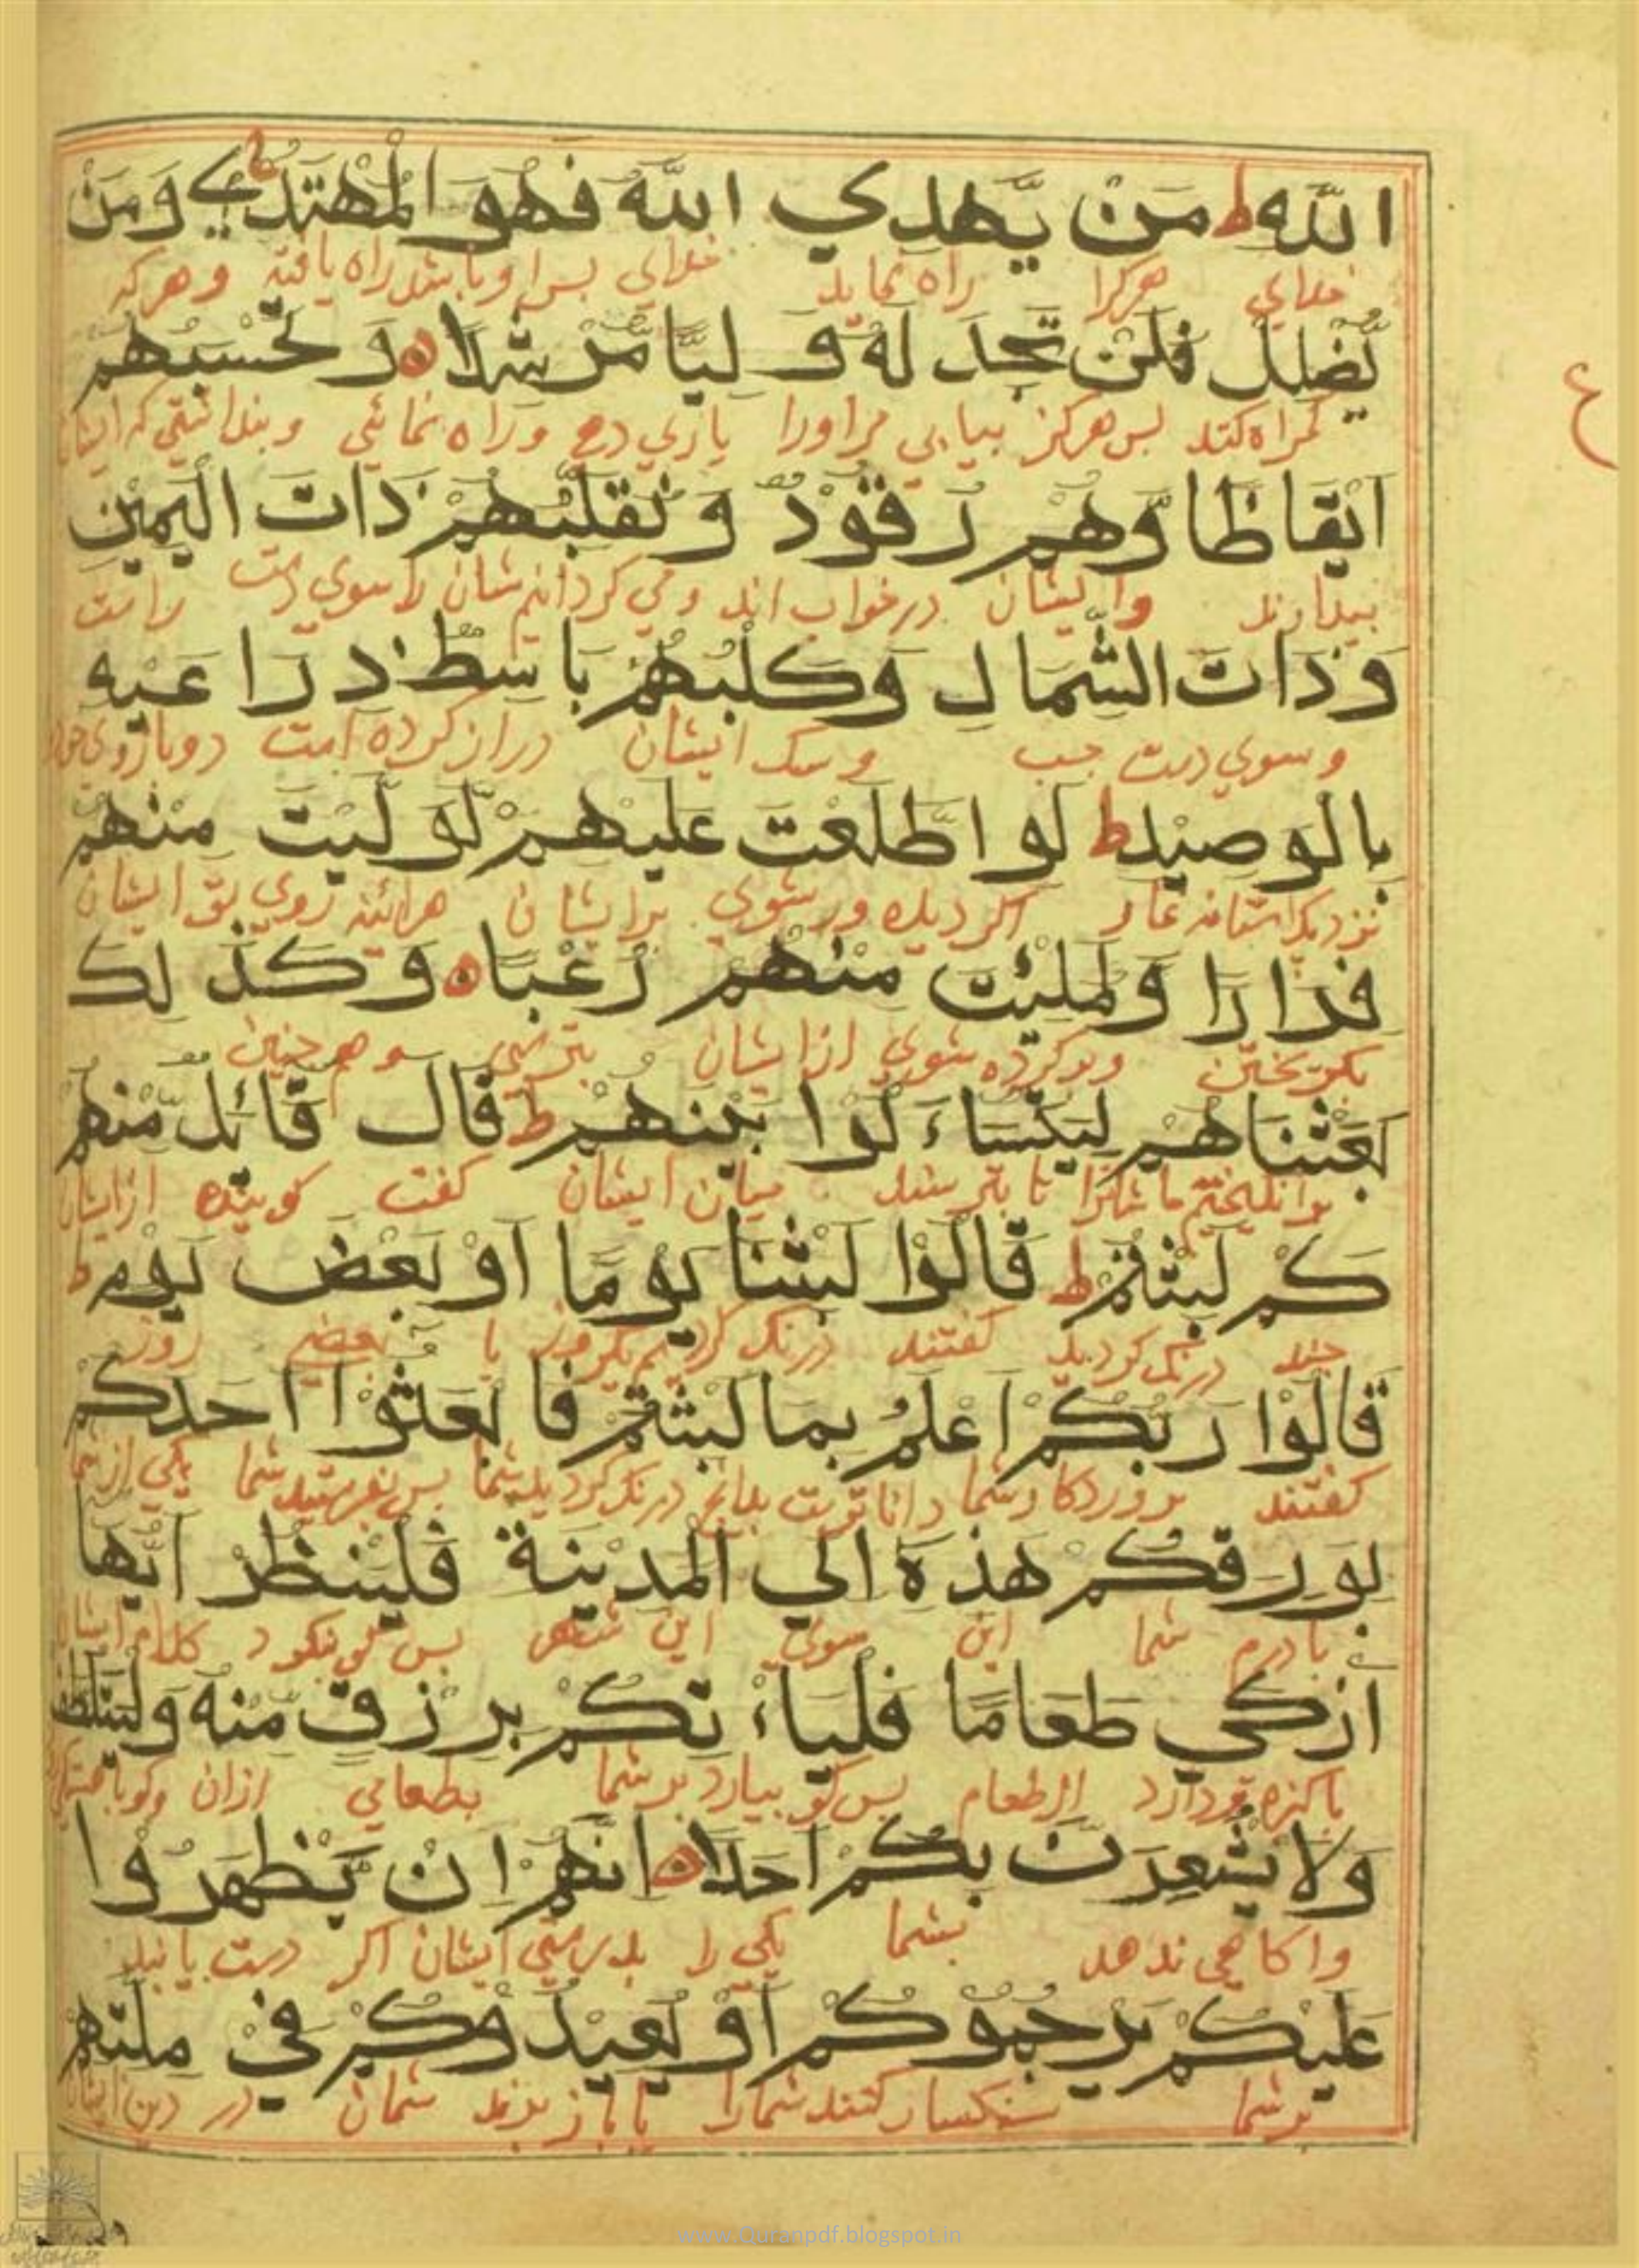 اللّٰهِ ط مَنْ يَّهدِي اللّٰهُ فَهُوَ الْمُهْتَدِي ج وَمَنْ
خدای هرکرا راه نماید خدای پس او باشد راه یافته و هرکه
يُّضْلِلْ فَلَنْ تَجِدَ لَهُ وَلِيًّا مُّرْشِدًا ه وَتَحْسَبُهُمْ
گمراه کند پس هرگز نیابی مر اورا یاری ده و راه نمائی و پنداشتی که ایشان
اَيْقَاظًا وَّهُمْ رُقُوْدٌ وَنُقَلِّبُهُمْ ذَاتَ الْيَمِيْنِ
بیدارند و ایشان در خواب اند و می گردانیم شان را سوی دست راست
وَذَاتَ الشِّمَالِ وَكَلْبُهُمْ بَاسِطٌ ذِرَاعَيْهِ
و سوی دست چپ و سگ ایشان دراز کرده است دو بازوی خود
بِالْوَصِيْدِ ط لَوِ اطَّلَعْتَ عَلَيْهِمْ لَوَلَّيْتَ مِنْهُمْ
نزدیک آستانه غار اگر دیده ور شوی بر ایشان هرائینه روی ایشان
فِرَارًا وَّلَمُلِئْتَ مِنْهُمْ رُعْبًا ه وَكَذٰلِكَ
بگریختن و پر کرده شوی از ایشان بترسی و هم چنین
بَعَثْنَاهُمْ لِيَتَسَاءَلُوْا بَيْنَهُمْ ط قَالَ قَائِلٌ مِّنْهُمْ
برانگیختیم ما شانرا تا بپرسند میان ایشان گفت گوینده از ایشان
كَمْ لَبِثْتُمْ ط قَالُوْا لَبِثْنَا يَوْمًا اَوْ بَعْضَ يَوْمٍ ط
چند درنگ کردید گفتند درنگ کردیم یکروز یا بعضی روز
قَالُوْا رَبُّكُمْ اَعْلَمُ بِمَا لَبِثْتُمْ فَابْعَثُوْا اَحَدَكُمْ
گفتند پروردگار شما داناترست بدانچ درنگ کردید شما پس بفرستید شما یکی از شما
بِوَرِقِكُمْ هٰذِهٖ اِلَي الْمَدِيْنَةِ فَلْيَنْظُرْ اَيُّهَا
بادرم شما این سوی این شهر پس گو بنگرد کدام ایشان
اَزْكٰي طَعَامًا فَلْيَاْتِكُمْ بِرِزْقٍ مِّنْهُ وَلْيَتَلَطَّفْ
پاکیزه تر دارد از طعام پس گو بیارد بر شما بطعامی ازان
وَلَا يُشْعِرَنَّ بِكُمْ اَحَدًا ه اِنَّهُمْ اِنْ يَّظْهَرُوْا
و آگاهی ندهد بشما یکی را بدرستی ایشان اگر دست یابند
عَلَيْكُمْ يَرْجُمُوْكُمْ اَوْ يُعِيْدُوْكُمْ فِيْ مِلَّتِهِمْ
بر شما سنگسار کنند شمارا یا باز برند شمان در دین ایشان
ع
www.Quranpdf.blogspot.in